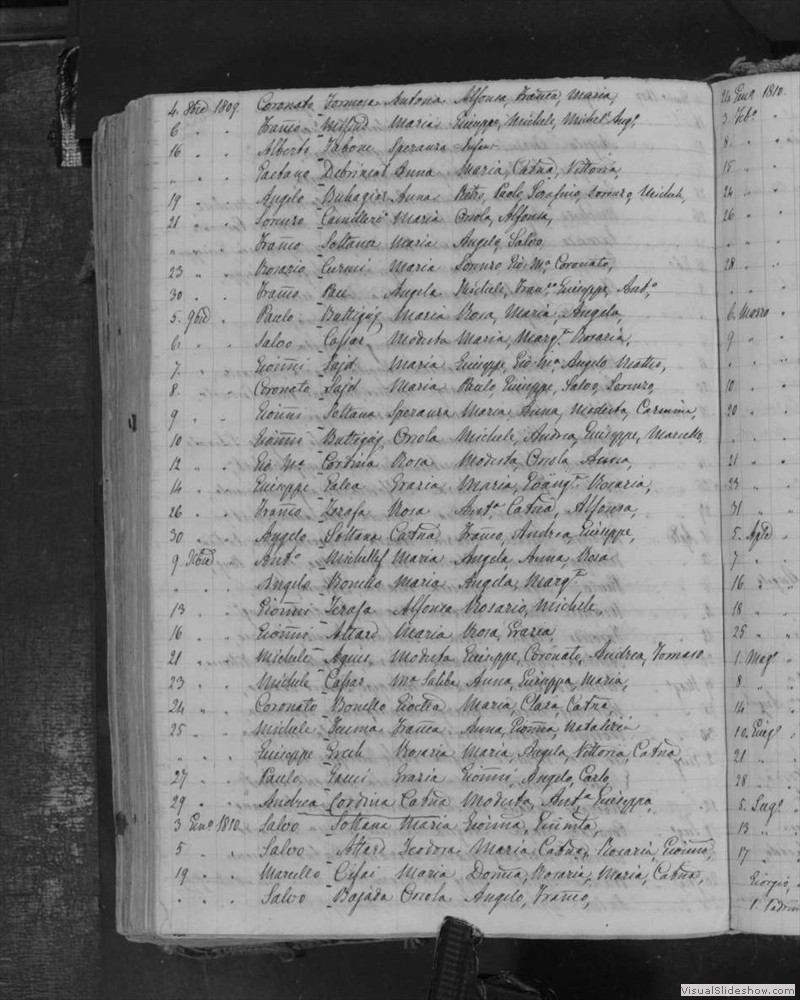 4 8bre 1809 Coronato Formosa Antona Alfonsa, Franca, Maria,
6 " " Franco Mifsud Maria Giuseppe, Michele, Michel' Ang.
16 " " Alberto Fabone Speranza
" " " Gaetano Debrincat Anna Maria, Catna, Vittoria,
19 " " Angelo Buhagiar Anna Pietro, Paolo, Serafino, Lorenzo, Michele,
21 " " Lorenzo Camilleri Maria Orsola, Alfonsa,
" " " Franco Soltana Maria Angelo, Salvo,
23 " " Rosario Curmi Maria Lorenzo, Gio Ma, Coronato,
30 " " Franco Pace Angela Michele, Franco, Giuseppe, Anto,
5 9bre " Paulo Buttigieg Maria Rosa, Maria, Angela,
6 " " Salvo Cassar Modesta Maria, Margta, Rosaria,
7 " " Gionni Sajd Maria Giuseppe, Gio Ma, Angelo, Matteo,
8 " " Coronato Sajd Maria Paulo, Giuseppe, Salvo, Lorenzo,
9 " " Gionni Soltana Speranza Maria Anna, Modesta, Carmina,
10 " " Gionni Buttigieg Orsola Michele, Andrea, Giuseppe, Marcello,
12 " " Gio Ma Cordina Rosa Modesta, Orsola, Anna,
14 " " Giuseppe Galea Grazia Maria, Evangta, Rosaria,
26 " " Franco Zerafa Rosa Anta, Catna, Alfonsa,
30 " " Angelo Soltana Catna Franco, Andrea, Giuseppe,
9 Xbre " Anto Michellef Maria Angela, Anna, Rosa
" " " Angelo Bonello Maria Angela, Margta
13 " " Gionni Zerafa Alfonsa Rosario, Michele,
16 " " Gionni Attard Maria Rosa, Grazia,
21 " " Michele Agius Modesta Giuseppe, Coronato, Andrea, Tomaso
23 " " Michele Cassar Ma Saliba Anna, Giuseppa, Maria,
24 " " Coronato Bonello Maria, Clara, Catna
25 " " Michele Franca Anna, Gionna, Natalizia
" " " Giuseppe Grech Rosaria Maria, Angela, Vittoria, Catna
27 " " Paulo Gauci Grazia Gionni, Angelo, Carlo,
29 " " Andrea Cordina Catna Modesta, Anta, Giuseppa,
3 Geno 1810 Salvo Soltana Maria Gionna,
5 " " Salvo Attard Teodora Maria, Catna, Rosaria, Gionna,
19 " " Marcello Cefai Maria Domca, Rosaria, Maria, Catna,
" " " Salvo Bajada Orsola Angelo, Franco,
24 Geno 1810
3 Febo "
8 "
15 "
24 "
26 "
28 "
6 Marzo
9 "
10 "
20 "
21 "
23 "
31 "
5 Aple
7 "
16 "
18 "
25 "
1 Mago
8 "
14 "
10 Giugo
21 "
28 "
5 Lugo
13 "
17 "
Giorgio,
VisualSlideshow.com